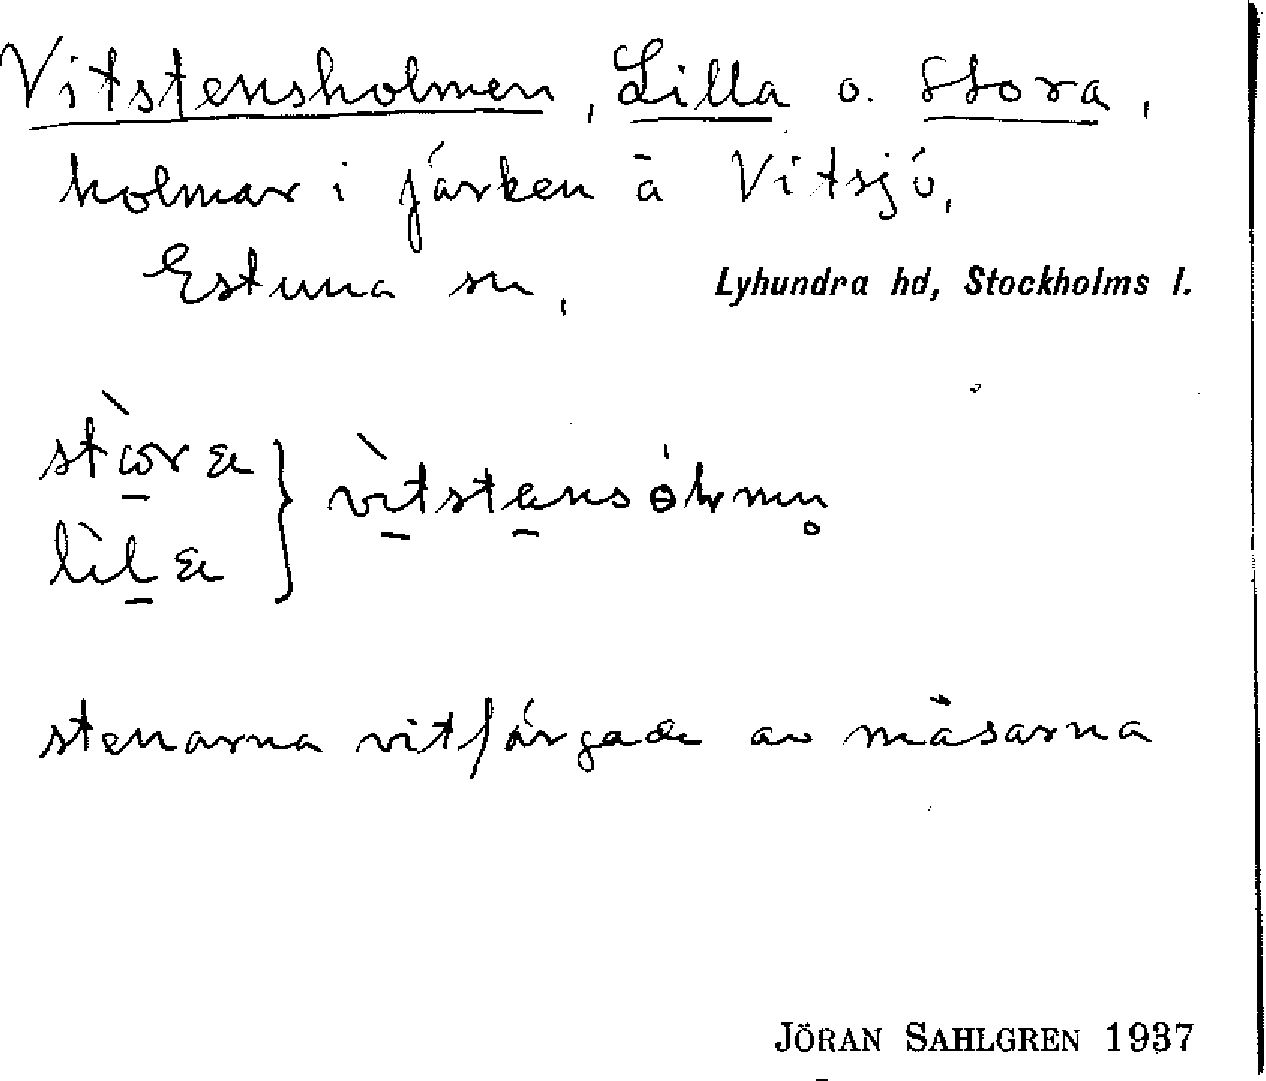 Vitstensholmen, Lilla o. Stora,
holmar i fjärden å Vitsjö,
Estuna sn, Lyhundra hd, Stockholms l.
stenarna vitfärgade av måsarna
JÖRAN SAHLGREN 1937